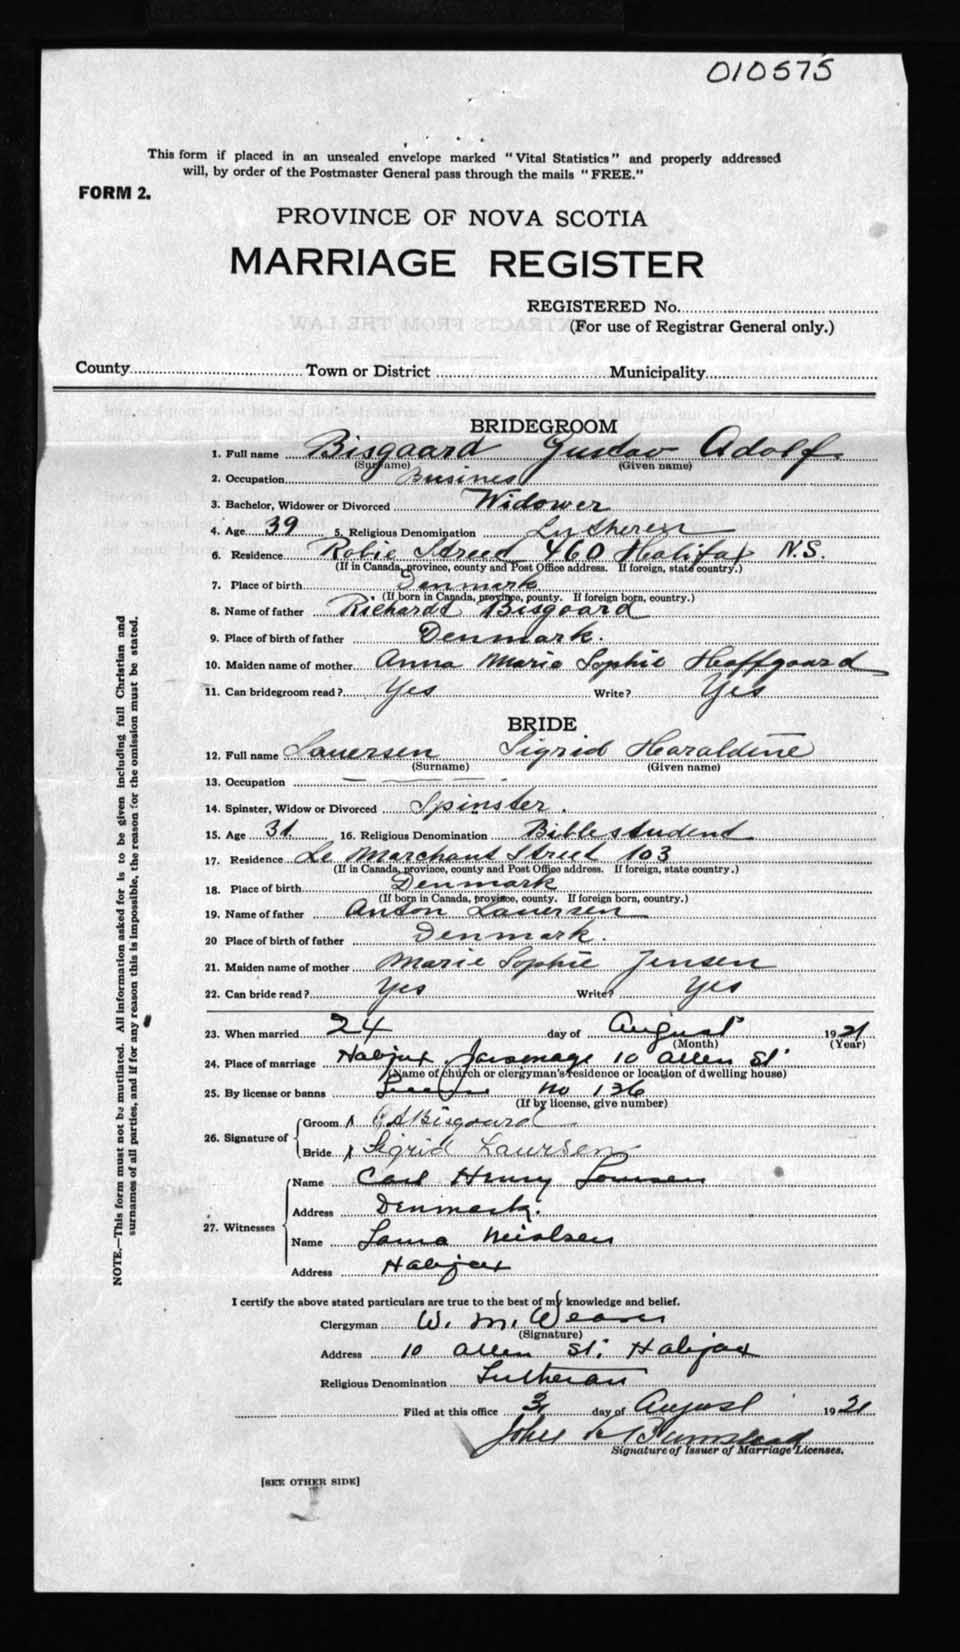 010575
This form if placed in an unsealed envelope marked "Vital Statistics" and properly addressed
will, by order of the Postmaster General pass through the mails "FREE."
FORM 2.
PROVINCE OF NOVA SCOTIA
MARRIAGE REGISTER
REGISTERED No.
(For use of Registrar General only.)
County Town or District Municipality
BRIDEGROOM
1. Full name Bisgaard Gustav Adolf
(Surname) (Given name)
2. Occupation Busines
3. Bachelor, Widower or Divorced Widower
4. Age 39 5. Religious Denomination Lutheren
6. Residence Robie Streed 460 Halifax N.S.
(If in Canada, province, county and Post Office address. If foreign, state country.)
7. Place of birth Denmark
(If born in Canada, province, county. If foreign born, country.)
8. Name of father Richardt Bisgaard
9. Place of birth of father Denmark.
10. Maiden name of mother Anna Marie Sophie Hoffgaard
11. Can bridegroom read? Yes Write? Yes
BRIDE
12. Full name Lauersen Sigrid Haraldine
(Surname) (Given name)
13. Occupation — — — —
14. Spinster, Widow or Divorced Spinster.
15. Age 31 16. Religious Denomination Biblestudend
17. Residence Le Marchant Street 103
(If in Canada, province, county and Post Office address. If foreign, state country.)
18. Place of birth Denmark
(If born in Canada, province, county. If foreign born, country.)
19. Name of father Anton Lauersen
20 Place of birth of father Denmark.
21. Maiden name of mother Marie Sophie Jensen
22. Can bride read? Yes Write? Yes
23. When married 24 day of August 1921
(Month) (Year)
24. Place of marriage Halifax Parsonage 10 Allen St.
(Name of church or clergyman's residence or location of dwelling house)
25. By license or banns License no 136
(If by license, give number)
26. Signature of Groom Bisgaard
Bride Sigrid Laursen
27. Witnesses Name Carl Henry Laursen
Address Denmark.
Name Nielsen
Address Halifax
I certify the above stated particulars are true to the best of my knowledge and belief.
Clergyman W. M. Weaver
(Signature)
Address 10 Allen St. Halifax
Religious Denomination Lutheran
Filed at this office day of August 1921
John Bumstead
Signature of Issuer of Marriage Licenses.
[SEE OTHER SIDE]
NOTE.—This form must not be mutilated. All information asked for is to be given including full Christian and
surnames of all parties, and if for any reason this is impossible, the reason for the omission must be stated.